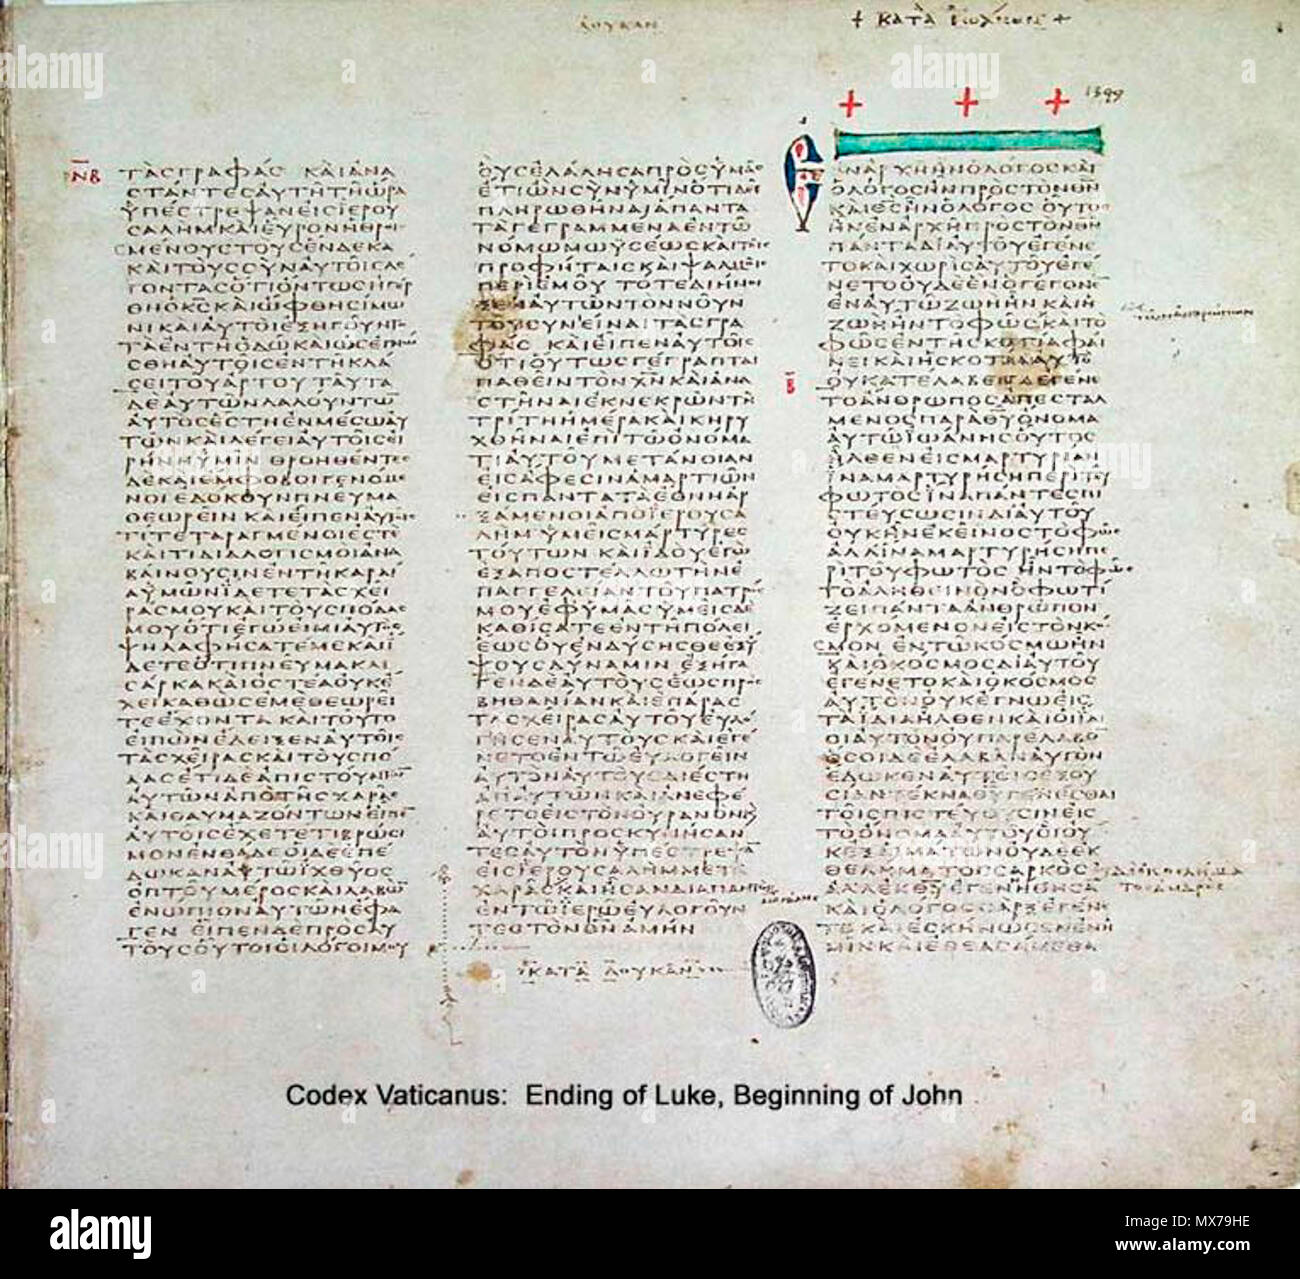 ΛΟΥΚΑΝ
+ ΚΑΤΑ ΙΩΑΝΗΝ +
1349
ΝΒ
ΤΑΣ ΓΡΑΦΑΣ ΚΑΙ ΑΝΑ
ΣΤΑΝΤΕΣ ΑΥΤΗ ΤΗ ΩΡΑ
ΥΠΕΣΤΡΕΨΑΝ ΕΙΣ ΙΕΡΟΥ
ΣΑΛΗΜ ΚΑΙ ΕΥΡΟΝ ΗΘΡΟΙ
ΣΜΕΝΟΥΣ ΤΟΥΣ ΕΝΔΕΚΑ
ΚΑΙ ΤΟΥΣ ΣΥΝ ΑΥΤΟΙΣ ΛΕ
ΓΟΝΤΑΣ ΟΤΙ ΟΝΤΩΣ ΗΓΕΡ
ΘΗ Ο ΚΣ ΚΑΙ ΩΦΘΗ ΣΙΜΩ
ΝΙ ΚΑΙ ΑΥΤΟΙ ΕΞΗΓΟΥΝΤΟ
ΤΑ ΕΝ ΤΗ ΟΔΩ ΚΑΙ ΩΣ ΕΓΝΩ
ΣΘΗ ΑΥΤΟΙΣ ΕΝ ΤΗ ΚΛΑ
ΣΕΙ ΤΟΥ ΑΡΤΟΥ ΤΑΥΤΑ
ΔΕ ΑΥΤΩΝ ΛΑΛΟΥΝΤΩ
ΑΥΤΟΣ ΕΣΤΗ ΕΝ ΜΕΣΩ ΑΥ
ΤΩΝ ΚΑΙ ΛΕΓΕΙ ΑΥΤΟΙΣ ΕΙ
ΡΗΝΗ ΥΜΙΝ ΘΡΟΗΘΕΝΤΕΣ
ΔΕ ΚΑΙ ΕΜΦΟΒΟΙ ΓΕΝΟΜΕ
ΝΟΙ ΕΔΟΚΟΥΝ ΠΝΕΥΜΑ
ΘΕΩΡΕΙΝ ΚΑΙ ΕΙΠΕΝ ΑΥΤΟΙΣ
ΤΙ ΤΕΤΑΡΑΓΜΕΝΟΙ ΕΣΤΕ
ΚΑΙ ΤΙ ΔΙΑΛΟΓΙΣΜΟΙ ΑΝΑ
ΒΑΙΝΟΥΣΙΝ ΕΝ ΤΗ ΚΑΡΔΙ
Α ΥΜΩΝ ΙΔΕΤΕ ΤΑΣ ΧΕΙ
ΡΑΣ ΜΟΥ ΚΑΙ ΤΟΥΣ ΠΟΔΑΣ
ΜΟΥ ΟΤΙ ΕΓΩ ΕΙΜΙ ΑΥΤΟΣ
ΨΗΛΑΦΗΣΑΤΕ ΜΕ ΚΑΙ Ι
ΔΕΤΕ ΟΤΙ ΠΝΕΥΜΑ ΚΑΙ
ΣΑΡΚΑ ΚΑΙ ΟΣΤΕΑ ΟΥΚ Ε
ΧΕΙ ΚΑΘΩΣ ΕΜΕ ΘΕΩΡΕΙ
ΤΕ ΕΧΟΝΤΑ ΚΑΙ ΤΟΥΤΟ
ΕΙΠΩΝ ΕΔΕΙΞΕΝ ΑΥΤΟΙΣ
ΤΑΣ ΧΕΙΡΑΣ ΚΑΙ ΤΟΥΣ ΠΟ
ΔΑΣ ΕΤΙ ΔΕ ΑΠΙΣΤΟΥΝΤΩ
ΑΥΤΩΝ ΑΠΟ ΤΗΣ ΧΑΡΑΣ
ΚΑΙ ΘΑΥΜΑΖΟΝΤΩΝ ΕΙΠΕ
ΑΥΤΟΙΣ ΕΧΕΤΕ ΤΙ ΒΡΩΣΙ
ΜΟΝ ΕΝΘΑΔΕ ΟΙ ΔΕ ΕΠΕ
ΔΩΚΑΝ ΑΥΤΩ ΙΧΘΥΟΣ
ΟΠΤΟΥ ΜΕΡΟΣ ΚΑΙ ΛΑΒΩ
ΕΝΩΠΙΟΝ ΑΥΤΩΝ ΕΦΑ
ΓΕΝ ΕΙΠΕΝ ΔΕ ΠΡΟΣ ΑΥ
ΤΟΥΣ ΟΥΤΟΙ ΟΙ ΛΟΓΟΙ ΜΟΥ
ΟΥΣ ΕΛΑΛΗΣΑ ΠΡΟΣ ΥΜΑΣ
ΕΤΙ ΩΝ ΣΥΝ ΥΜΙΝ ΟΤΙ ΔΕΙ
ΠΛΗΡΩΘΗΝΑΙ ΑΠΑΝΤΑ
ΤΑ ΓΕΓΡΑΜΜΕΝΑ ΕΝ ΤΩ
ΝΟΜΩ ΜΩΥΣΕΩΣ ΚΑΙ ΤΟΙΣ
ΠΡΟΦΗΤΑΙΣ ΚΑΙ ΨΑΛΜΟΙΣ
ΠΕΡΙ ΕΜΟΥ ΤΟΤΕ ΔΙΗΝΟΙ
ΞΕΝ ΑΥΤΩΝ ΤΟΝ ΝΟΥΝ
ΤΟΥ ΣΥΝΕΙΝΑΙ ΤΑΣ ΓΡΑ
ΦΑΣ ΚΑΙ ΕΙΠΕΝ ΑΥΤΟΙΣ
ΟΤΙ ΟΥΤΩΣ ΓΕΓΡΑΠΤΑΙ
ΠΑΘΕΙΝ ΤΟΝ ΧΝ ΚΑΙ ΑΝΑ
ΣΤΗΝΑΙ ΕΚ ΝΕΚΡΩΝ ΤΗ
ΤΡΙΤΗ ΗΜΕΡΑ ΚΑΙ ΚΗΡΥ
ΧΘΗΝΑΙ ΕΠΙ ΤΩ ΟΝΟΜΑ
ΤΙ ΑΥΤΟΥ ΜΕΤΑΝΟΙΑΝ
ΕΙΣ ΑΦΕΣΙΝ ΑΜΑΡΤΙΩΝ
ΕΙΣ ΠΑΝΤΑ ΤΑ ΕΘΝΗ ΑΡ
ΞΑΜΕΝΟΙ ΑΠΟ ΙΕΡΟΥΣΑ
ΛΗΜ ΥΜΕΙΣ ΜΑΡΤΥΡΕΣ
ΤΟΥΤΩΝ ΚΑΙ ΙΔΟΥ ΕΓΩ
ΕΞΑΠΟΣΤΕΛΛΩ ΤΗΝ Ε
ΠΑΓΓΕΛΕΙΑΝ ΤΟΥ ΠΑΤΡΟΣ
ΜΟΥ ΕΦ ΥΜΑΣ ΥΜΕΙΣ ΔΕ
ΚΑΘΙΣΑΤΕ ΕΝ ΤΗ ΠΟΛΕΙ
ΕΩΣ ΟΥ ΕΝΔΥΣΗΣΘΕ ΕΞ Υ
ΨΟΥΣ ΔΥΝΑΜΙΝ ΕΞΗΓΑ
ΓΕΝ ΔΕ ΑΥΤΟΥΣ ΕΩΣ ΠΡΟΣ
ΒΗΘΑΝΙΑΝ ΚΑΙ ΕΠΑΡΑΣ
ΤΑΣ ΧΕΙΡΑΣ ΑΥΤΟΥ ΕΥΛΟ
ΓΗΣΕΝ ΑΥΤΟΥΣ ΚΑΙ ΕΓΕ
ΝΕΤΟ ΕΝ ΤΩ ΕΥΛΟΓΕΙΝ
ΑΥΤΟΝ ΑΥΤΟΥΣ ΔΙΕΣΤΗ
ΑΠ ΑΥΤΩΝ ΚΑΙ ΑΝΕΦΕ
ΡΕΤΟ ΕΙΣ ΤΟΝ ΟΥΡΑΝΟΝ Κ
ΑΥΤΟΙ ΠΡΟΣΚΥΝΗΣΑΝ
ΤΕΣ ΑΥΤΟΝ ΥΠΕΣΤΡΕΨΑ
ΕΙΣ ΙΕΡΟΥΣΑΛΗΜ ΜΕΤΑ
ΧΑΡΑΣ ΚΑΙ ΗΣΑΝ ΔΙΑΠΑΝΤΟΣ
ΕΝ ΤΩ ΙΕΡΩ ΕΥΛΟΓΟΥΝ
ΤΕΣ ΤΟΝ ΘΝ ΑΜΗΝ
ΚΑΤΑ ΛΟΥΚΑΝ
ΕΝ ΑΡΧΗ ΗΝ Ο ΛΟΓΟΣ ΚΑΙ
Ο ΛΟΓΟΣ ΗΝ ΠΡΟΣ ΤΟΝ ΘΝ
ΚΑΙ ΘΣ ΗΝ Ο ΛΟΓΟΣ ΟΥΤΟΣ
ΗΝ ΕΝ ΑΡΧΗ ΠΡΟΣ ΤΟΝ ΘΝ
ΠΑΝΤΑ ΔΙ ΑΥΤΟΥ ΕΓΕΝΕ
ΤΟ ΚΑΙ ΧΩΡΙΣ ΑΥΤΟΥ ΕΓΕ
ΝΕΤΟ ΟΥΔΕ ΕΝ Ο ΓΕΓΟΝΕ
ΕΝ ΑΥΤΩ ΖΩΗ ΗΝ ΚΑΙ Η
ΖΩΗ ΗΝ ΤΟ ΦΩΣ ΚΑΙ ΤΟ
ΦΩΣ ΕΝ ΤΗ ΣΚΟΤΙΑ ΦΑΙ
ΝΕΙ ΚΑΙ Η ΣΚΟΤΙΑ ΑΥΤΟ
Β
ΟΥ ΚΑΤΕΛΑΒΕΝ ΕΓΕΝΕ
ΤΟ ΑΝΘΡΩΠΟΣ ΑΠΕΣΤΑΛ
ΜΕΝΟΣ ΠΑΡΑ ΘΥ ΟΝΟΜΑ
ΑΥΤΩ ΙΩΑΝΗΣ ΟΥΤΟΣ
ΗΛΘΕΝ ΕΙΣ ΜΑΡΤΥΡΙΑΝ
ΙΝΑ ΜΑΡΤΥΡΗΣΗ ΠΕΡΙ ΤΟΥ
ΦΩΤΟΣ ΙΝΑ ΠΑΝΤΕΣ ΠΙ
ΣΤΕΥΣΩΣΙΝ ΔΙ ΑΥΤΟΥ
ΟΥΚ ΗΝ ΕΚΕΙΝΟΣ ΤΟ ΦΩΣ
ΑΛΛ ΙΝΑ ΜΑΡΤΥΡΗΣΗ ΠΕ
ΡΙ ΤΟΥ ΦΩΤΟΣ ΗΝ ΤΟ ΦΩΣ
ΤΟ ΑΛΗΘΕΙΝΟΝ Ο ΦΩΤΙ
ΖΕΙ ΠΑΝΤΑ ΑΝΘΡΩΠΟΝ
ΕΡΧΟΜΕΝΟΝ ΕΙΣ ΤΟΝ ΚΟ
ΣΜΟΝ ΕΝ ΤΩ ΚΟΣΜΩ ΗΝ
ΚΑΙ Ο ΚΟΣΜΟΣ ΔΙ ΑΥΤΟΥ
ΕΓΕΝΕΤΟ ΚΑΙ Ο ΚΟΣΜΟΣ
ΑΥΤΟΝ ΟΥΚ ΕΓΝΩ ΕΙΣ
ΤΑ ΙΔΙΑ ΗΛΘΕΝ ΚΑΙ ΟΙ ΙΔΙ
ΟΙ ΑΥΤΟΝ ΟΥ ΠΑΡΕΛΑΒΟ
ΟΣΟΙ ΔΕ ΕΛΑΒΑΝ ΑΥΤΟΝ
ΕΔΩΚΕΝ ΑΥΤΟΙΣ ΕΞΟΥ
ΣΙΑΝ ΤΕΚΝΑ ΘΥ ΓΕΝΕΣΘΑΙ
ΤΟΙΣ ΠΙΣΤΕΥΟΥΣΙΝ ΕΙΣ
ΤΟ ΟΝΟΜΑ ΑΥΤΟΥ ΟΙ ΟΥ
Κ ΕΞ ΑΙΜΑΤΩΝ ΟΥΔΕ ΕΚ
ΘΕΛΗΜΑΤΟΣ ΣΑΡΚΟΣ
ΑΛΛ ΕΚ ΘΥ ΕΓΕΝΗΘΗΣΑ
ΚΑΙ Ο ΛΟΓΟΣ ΣΑΡΞ ΕΓΕΝΕ
ΤΟ ΚΑΙ ΕΣΚΗΝΩΣΕΝ ΕΝ Η
ΜΙΝ ΚΑΙ ΕΘΕΑΣΑΜΕΘΑ
Codex Vaticanus: Ending of Luke, Beginning of John
alamy
Image ID: MX79HE
www.alamy.com